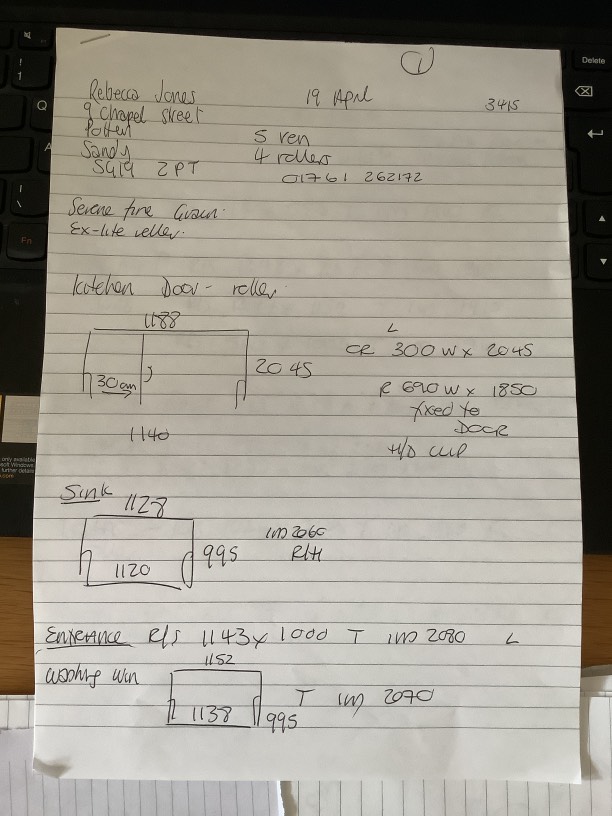 1
Rebecca Jones 19 April 3415
9 Chapel street
Potton 5 ven
Sandy 4 rollers
SG19 2PT 01761 262172
Serene fire
Ex-lite roller.
Kitchen Door - roller
1188
L
CR 300 W x 2045
2045
30cm
R 690 W x 1850
fixed to
DOOR
1140
H/D CLIP
Sink
1128
1120
995
IM 2060
R/H
Entrance R/S 1143 x 1000 T IM 2080 L
1152
Washing Win
1138
995
T IM 2070
Delete
Fn